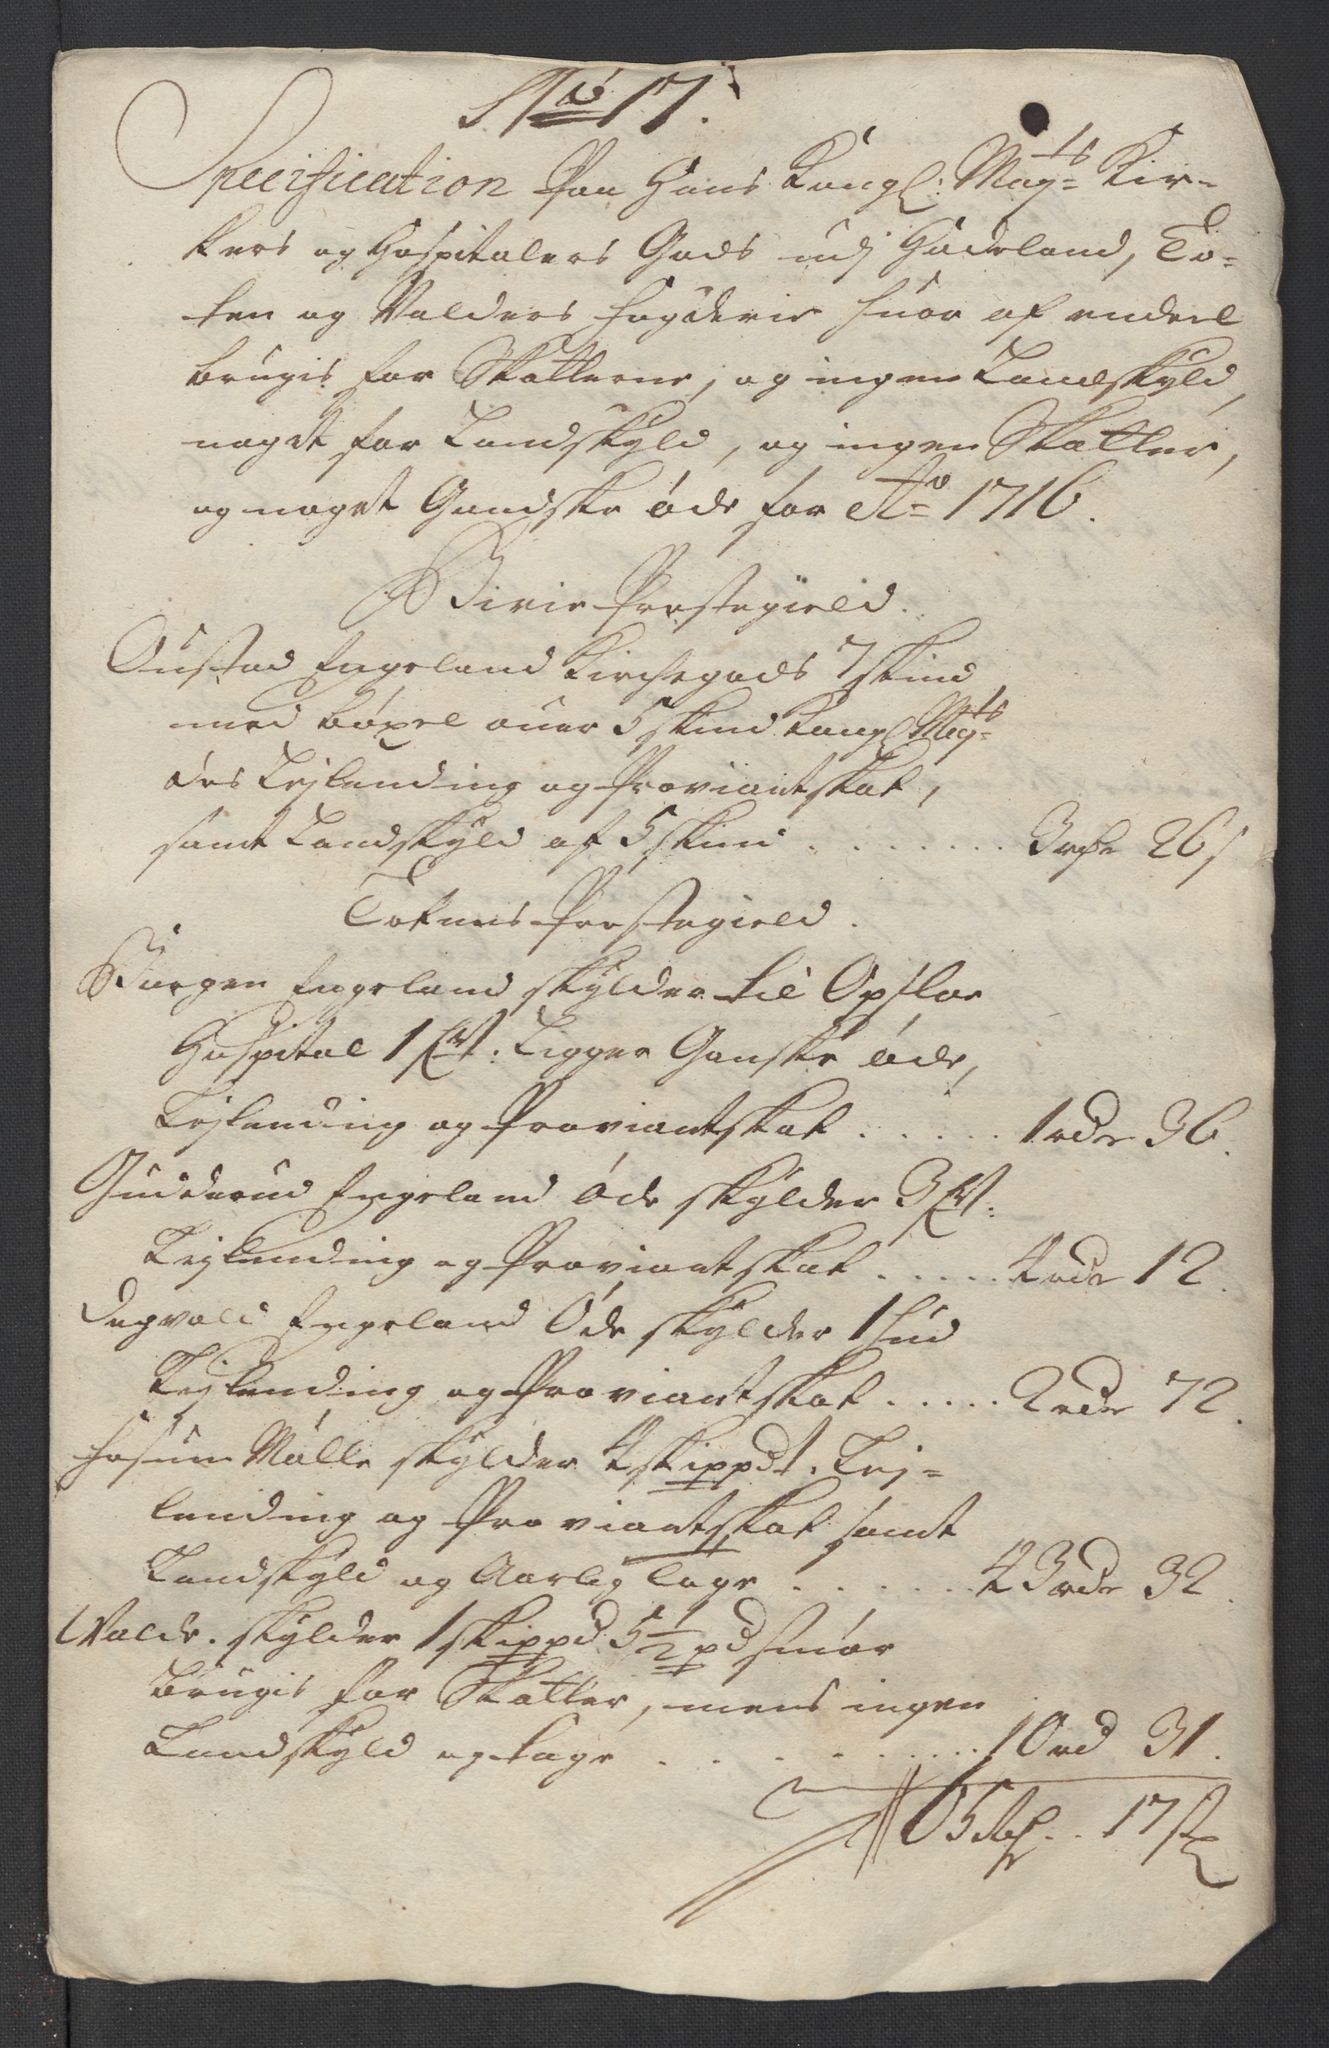 No 17.
Specification Paa Hans Kongl: Mayts Kir=
kers og Hospitalers Gods udj Hadeland, To=
ten og Valders fogderie huor af endeel
brugis for Skatterne, og ingen Landskyld,
noget for Landskyld, og ingen Skatter,
og noget Gandske øde for Ao 1716.
Birie Prestegield.
Austad Engeland Kirchegods 7 skind
med böxel ouer 5 skind Kongl Mayts
des Lejlending og Proviantskat,
samt Landskyld af 5 skind . . . . . . . 3 rdr 26 s
Totens Prestegield.
Biørgen Engeland skylder til Opsloe
Hospital 1 fr: Ligger Ganske øde,
Lejlending og Proviantskat . . . . . 1 rdr 36.
Gudderud Engeland øde skylder 3 fr:
Lejlending og Proviantskat . . . . . 4 rdr 12.
Degvold Engeland Øde skylder 1 hud
Lejlending og Proviantskat . . . . . 2 rdr 72.
Mølle skylder 4 skippd t. Lej=
lending og Proviantskat samt
Landskyld og Aarlig tage . . . . . . 43 rdr 32.
Walde. skylder 1 skippd 5 1/2 pd smör
brugis for Skatter, mens ingen
Landskyld og tage . . . . . . . . . 10 rd 31.
65 Rdr . . 17 s